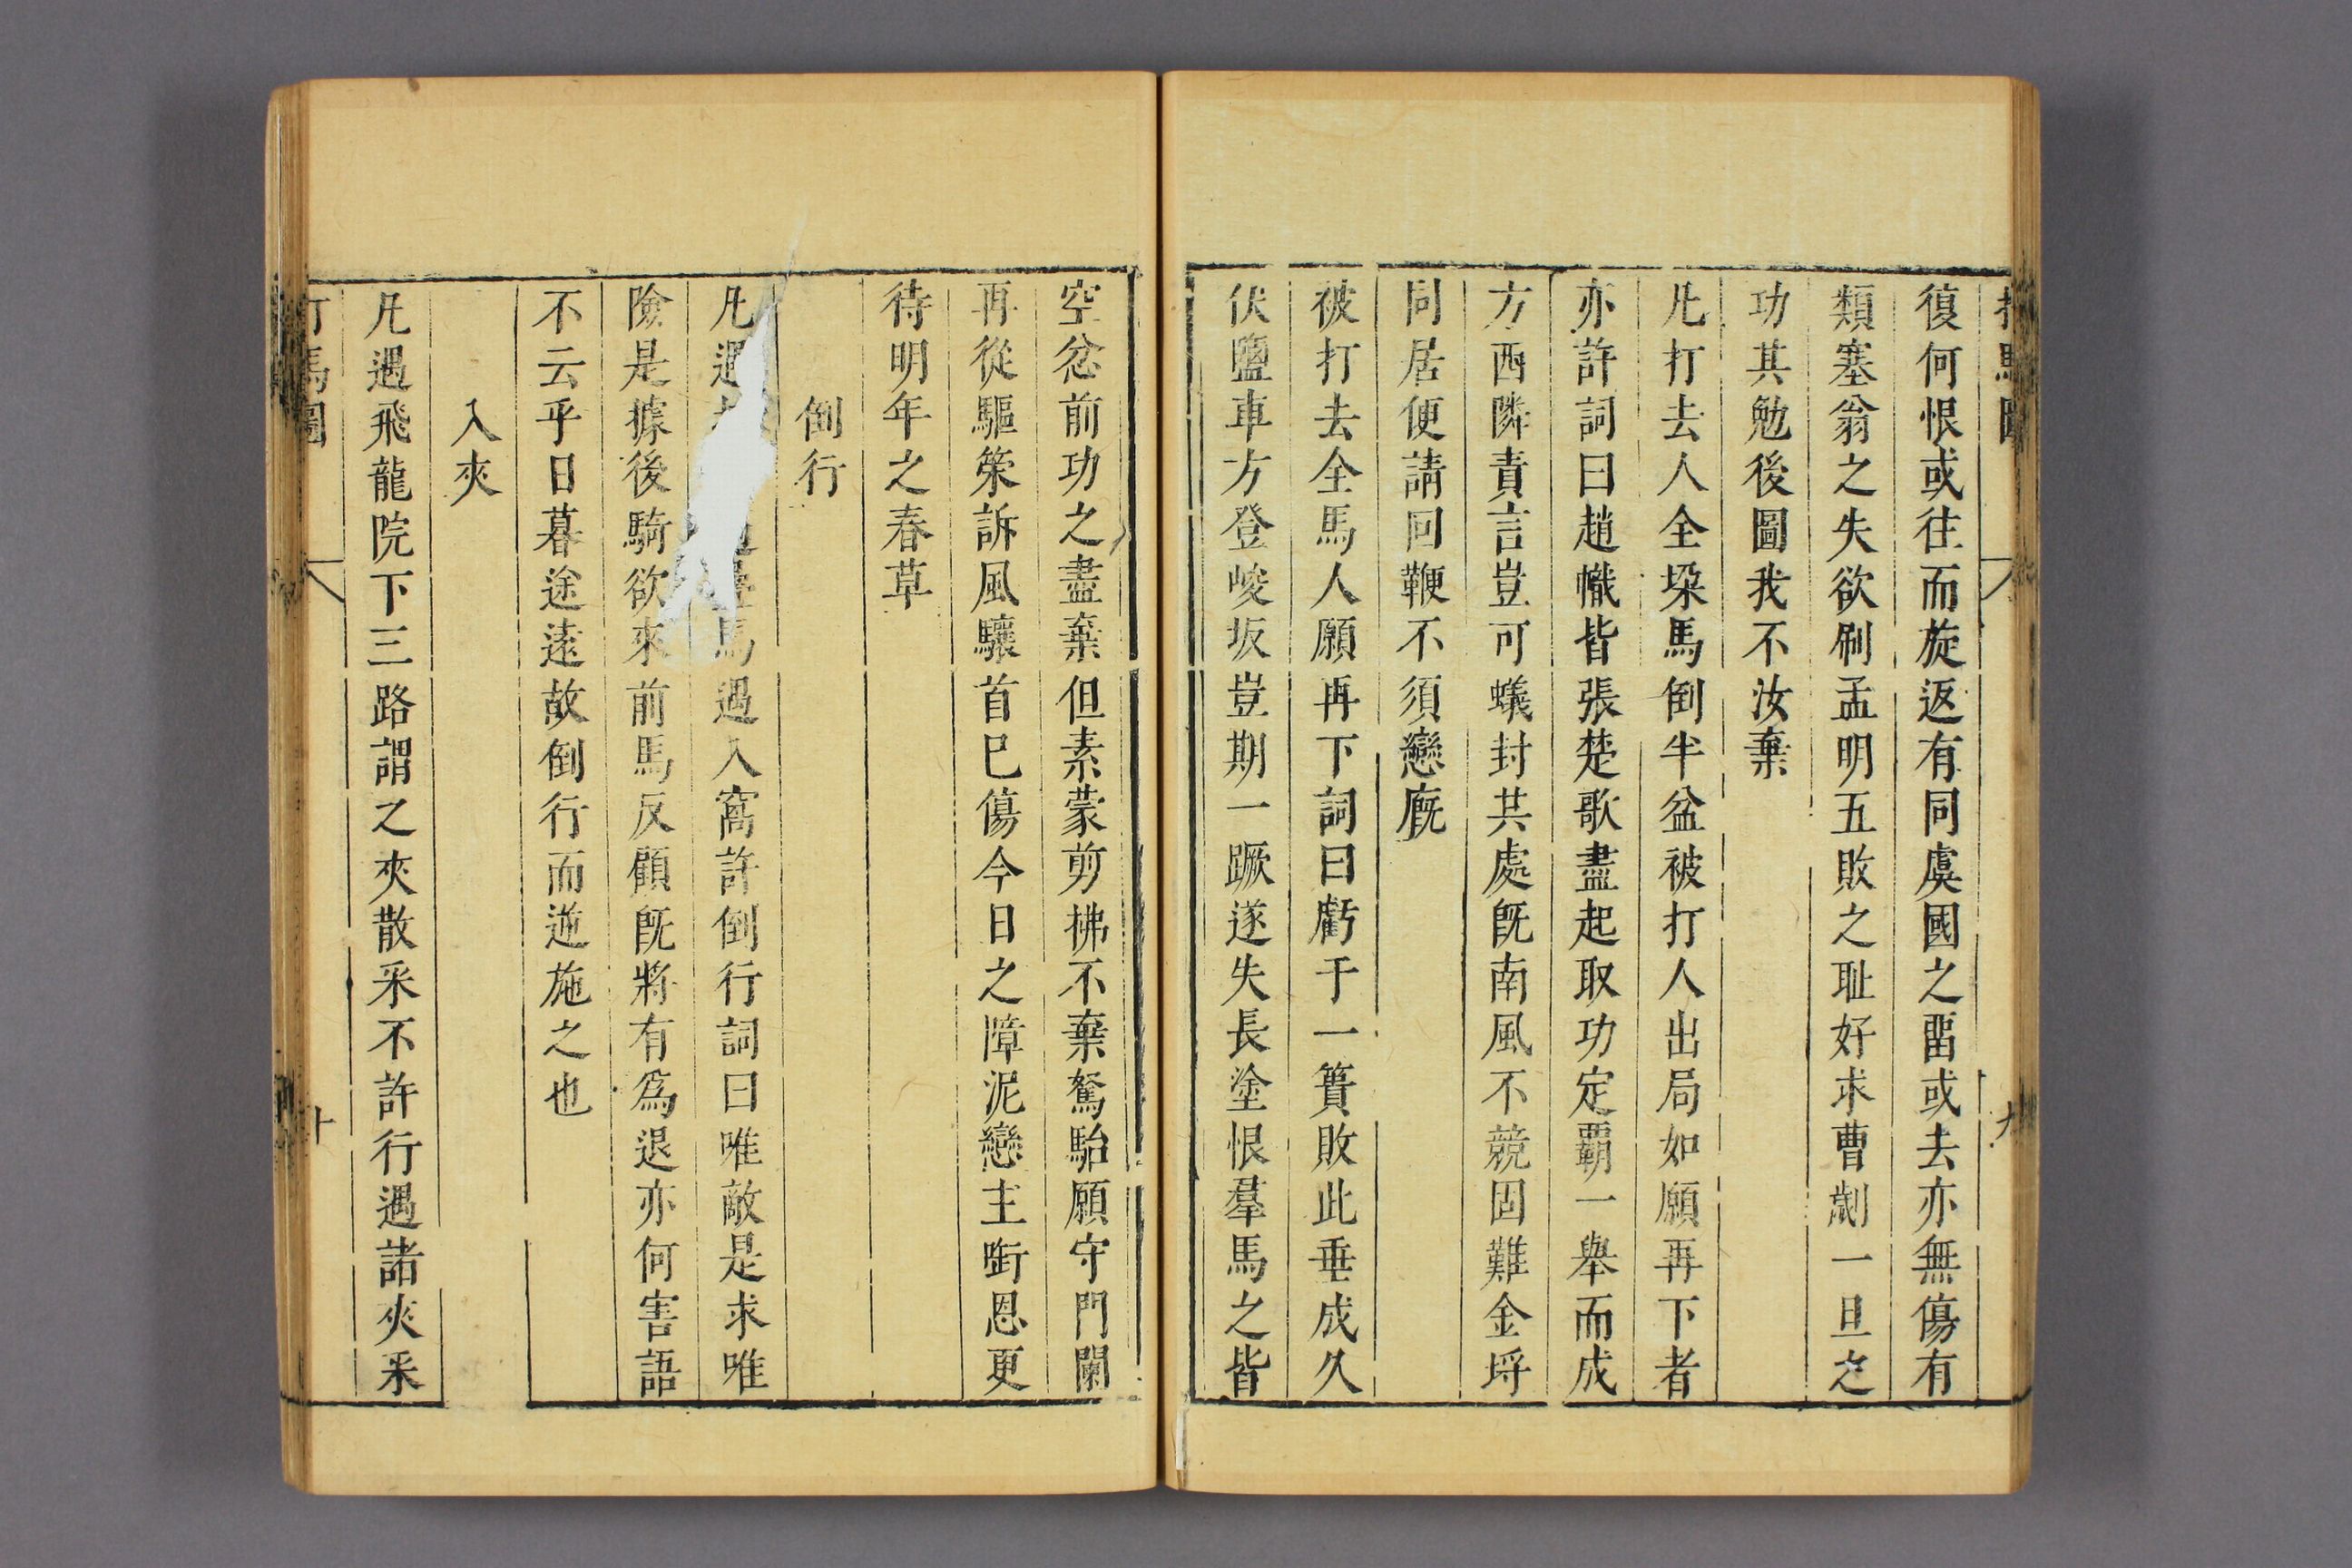 打馬圖
九
復何恨或往而旋返有同虞國之畱或去亦無傷有
類塞翁之失欲刷孟明五敗之耻好求曹劌一旦之
功其勉後圖我不汝棄
凡打去人全垜馬倒半盆被打人出局如願再下者
亦許詞曰趙幟皆張楚歌盡起取功定覇一舉而成
方西隣責言豈可蟻封共處旣南風不競固難金埒
同居便請回鞭不須戀廐
被打去全馬人願再下詞曰虧于一簣敗此垂成久
伏鹽車方登峻坂豈期一蹶遂失長塗恨羣馬之皆
空忿前功之盡棄但素蒙剪拂不棄駑駘願守門闌
再從驅策訴風驤首已傷今日之障泥戀主銜恩更
待明年之春草
倒行
凡遇馬過入窩許倒行詞曰唯敵是求唯
險是據後騎欲來前馬反顧旣將有爲退亦何害語
不云乎日暮途遠故倒行而逆施之也
入夾
凡遇飛龍院下三路謂之夾散采不許行遇諸夾采
打馬圖
十